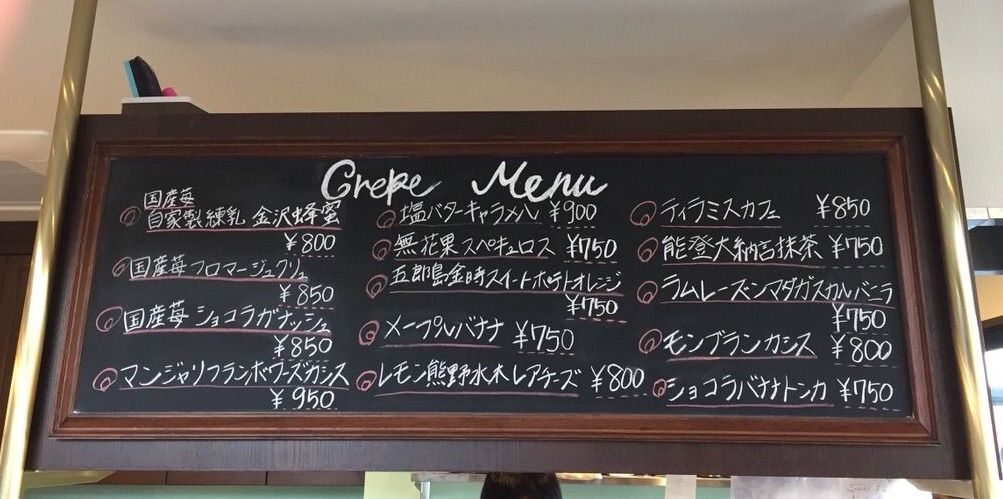 Crepe Menu
国産苺
自家製練乳 金沢蜂蜜
¥800
国産苺フロマージュクリュ
¥850
国産苺 ショコラガナッシュ
¥850
マンジャリフランボワーズカシス
¥950
塩バターキャラメル ¥900
無花果スペキュロス ¥750
五郎島金時スイートポテトオレンジ
¥750
メープルバナナ ¥750
レモン熊野水木レアチーズ ¥800
ティラミスカフェ ¥850
能登大納言抹茶 ¥750
ラムレーズンマダガスカルバニラ
¥750
モンブランカシス ¥800
ショコラバナナトンカ ¥750